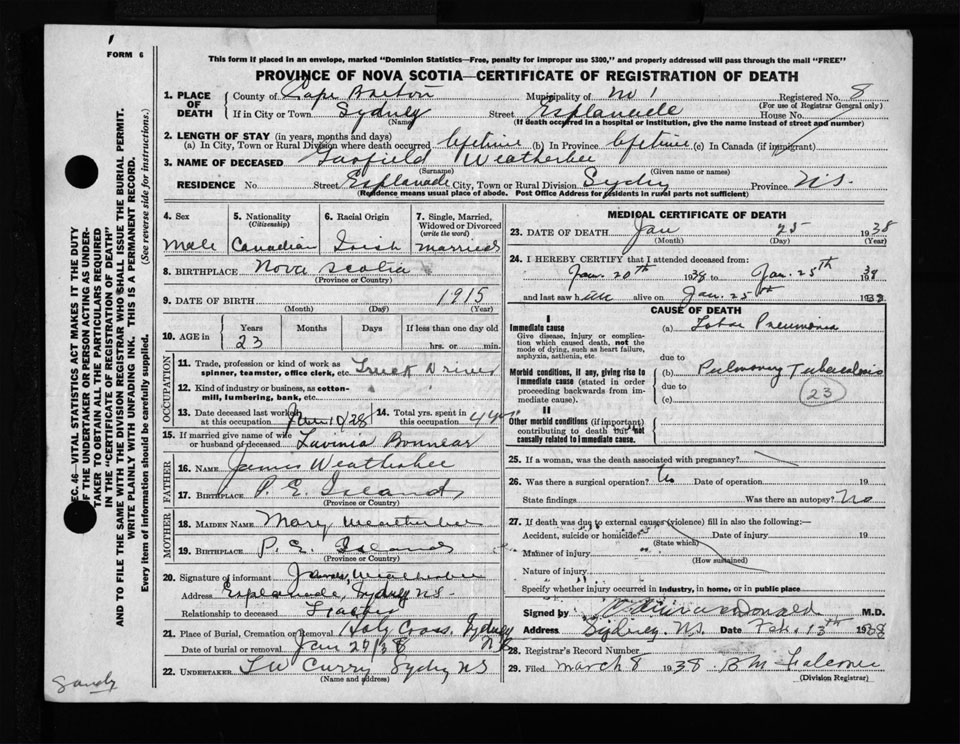 FORM 6
This form if placed in an envelope, marked "Dominion Statistics—Free, penalty for improper use $300," and properly addressed will pass through the mail "FREE"
PROVINCE OF NOVA SCOTIA—CERTIFICATE OF REGISTRATION OF DEATH
1. PLACE OF DEATH County of Cape Breton Municipality of No 1 Registered No. 8
(For use of Registrar General only)
If in City or Town Sydney Street Esplanade House No.
(Name) (If death occurred in a hospital or institution, give the name instead of street and number)
2. LENGTH OF STAY (in years, months and days)
(a) In City, Town or Rural Division where death occurred lifetime (b) In Province lifetime (c) In Canada (if immigrant)
3. NAME OF DECEASED Garfield Weatherbee
(Surname) (Given name or names)
RESIDENCE No Street Esplanade City, Town or Rural Division Sydney Province N.S.
(Residence means usual place of abode. Post Office Address for residents in rural parts not sufficient)
4. Sex 5. Nationality (Citizenship) 6. Racial Origin 7. Single, Married, Widowed or Divorced (write the word)
Male Canadian Irish Married
8. BIRTHPLACE Nova Scotia
(Province or Country)
9. DATE OF BIRTH 1915
(Month) (Day) (Year)
10. AGE in Years Months Days If less than one day old
23 hrs. or min.
OCCUPATION
11. Trade, profession or kind of work as spinner, teamster, office clerk, etc. Truck Driver
12. Kind of industry or business, as cotton-mill, lumbering, bank, etc.
13. Date deceased last worked at this occupation 14. Total yrs. spent in this occupation
15. If married give name of wife or husband of deceased Lavinia
FATHER
16. NAME James Weatherbee
17. BIRTHPLACE P. E. Island
(Province or Country)
MOTHER
18. MAIDEN NAME Mary Weatherbee
19. BIRTHPLACE P. E. Island
(Province or Country)
20. Signature of informant James Weatherbee
Address Esplanade, Sydney NS
Relationship to deceased Father
21. Place of Burial, Cremation or Removal Holy Cross, Sydney N.S.
Date of burial or removal Jan 27/38
22. UNDERTAKER T W Curry Sydney NS
(Name and address)
MEDICAL CERTIFICATE OF DEATH
23. DATE OF DEATH Jan 25 1938
(Month) (Day) (Year)
24. I HEREBY CERTIFY that I attended deceased from:
Jan. 20th 1938 to Jan. 25th 1938
and last saw him alive on Jan. 25th 1938
CAUSE OF DEATH
I
Immediate cause (a) Lobar Pneumonia
Give disease, injury or complication which caused death, not the mode of dying, such as heart failure, asphyxia, asthenia, etc.
due to
Morbid conditions, if any, giving rise to immediate cause (stated in order proceeding backwards from immediate cause). (b) Pulmonary Tuberculosis
due to
(c) 23
II
Other morbid conditions (if important) contributing to death but not causally related to immediate cause.
25. If a woman, was the death associated with pregnancy?
26. Was there a surgical operation? No Date of operation 19
State findings Was there an autopsy? No
27. If death was due to external causes (violence) fill in also the following:—
Accident, suicide or homicide? Date of injury 19
(State which)
Manner of injury
(How sustained)
Nature of injury
Specify whether injury occurred in industry, in home, or in public place
Signed by M.D.
Address Sydney. N.S. Date Feb. 13th 1938
28. Registrar's Record Number
29. Filed March 8 1938 B M Falconer
(Division Registrar)
SEC. 46—VITAL STATISTICS ACT MAKES IT THE DUTY
OF THE UNDERTAKER OR PERSON ACTING AS UNDER-
TAKER TO OBTAIN ALL THE PARTICULARS REQUIRED
IN THE "CERTIFICATE OF DEATH"
AND TO FILE THE SAME WITH THE DIVISION REGISTRAR WHO SHALL ISSUE THE BURIAL PERMIT.
WRITE PLAINLY WITH UNFADING INK. THIS IS A PERMANENT RECORD.
Every item of information should be carefully supplied. (See reverse side for instructions.)
Sandy